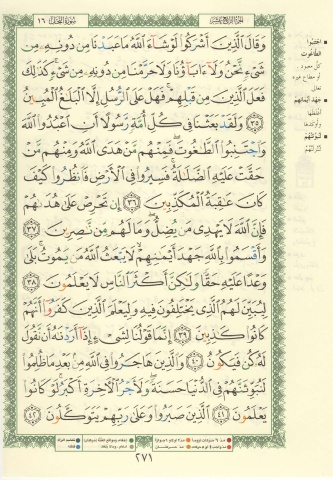 سُورَةُ النَّحْلِ ١٦
الجزء الرابع عشر
وَقَالَ ٱلَّذِينَ أَشْرَكُوا۟ لَوْ شَآءَ ٱللَّهُ مَا عَبَدْنَا مِن دُونِهِۦ مِن
شَىْءٍ نَّحْنُ وَلَآ ءَابَآؤُنَا وَلَا حَرَّمْنَا مِن دُونِهِۦ مِن شَىْءٍ كَذَٰلِكَ
فَعَلَ ٱلَّذِينَ مِن قَبْلِهِمْ فَهَلْ عَلَى ٱلرُّسُلِ إِلَّا ٱلْبَلَٰغُ ٱلْمُبِينُ
٣٥ وَلَقَدْ بَعَثْنَا فِى كُلِّ أُمَّةٍ رَّسُولًا أَنِ ٱعْبُدُوا۟ ٱللَّهَ
وَٱجْتَنِبُوا۟ ٱلطَّٰغُوتَ فَمِنْهُم مَّنْ هَدَى ٱللَّهُ وَمِنْهُم مَّنْ
حَقَّتْ عَلَيْهِ ٱلضَّلَٰلَةُ فَسِيرُوا۟ فِى ٱلْأَرْضِ فَٱنظُرُوا۟ كَيْفَ
كَانَ عَٰقِبَةُ ٱلْمُكَذِّبِينَ ٣٦ إِن تَحْرِصْ عَلَىٰ هُدَىٰهُمْ
فَإِنَّ ٱللَّهَ لَا يَهْدِى مَن يُضِلُّ وَمَا لَهُم مِّن نَّٰصِرِينَ ٣٧
وَأَقْسَمُوا۟ بِٱللَّهِ جَهْدَ أَيْمَٰنِهِمْ لَا يَبْعَثُ ٱللَّهُ مَن يَمُوتُ بَلَىٰ
وَعْدًا عَلَيْهِ حَقًّا وَلَٰكِنَّ أَكْثَرَ ٱلنَّاسِ لَا يَعْلَمُونَ ٣٨
لِيُبَيِّنَ لَهُمُ ٱلَّذِى يَخْتَلِفُونَ فِيهِ وَلِيَعْلَمَ ٱلَّذِينَ كَفَرُوٓا۟ أَنَّهُمْ
كَانُوا۟ كَٰذِبِينَ ٣٩ إِنَّمَا قَوْلُنَا لِشَىْءٍ إِذَآ أَرَدْنَٰهُ أَن نَّقُولَ
لَهُۥ كُن فَيَكُونُ ٤٠ وَٱلَّذِينَ هَاجَرُوا۟ فِى ٱللَّهِ مِنۢ بَعْدِ مَا ظُلِمُوا۟
لَنُبَوِّئَنَّهُمْ فِى ٱلدُّنْيَا حَسَنَةً وَلَأَجْرُ ٱلْءَاخِرَةِ أَكْبَرُ لَوْ كَانُوا۟
يَعْلَمُونَ ٤١ ٱلَّذِينَ صَبَرُوا۟ وَعَلَىٰ رَبِّهِمْ يَتَوَكَّلُونَ ٤٢
اجتنبوا
الطاغوت
كل معبود
أو مطاع غيره
تعالى
جهد أيمانهم
أغلظها
وأوكدها
لنبوئنهم
لننزلنهم
٢٧١